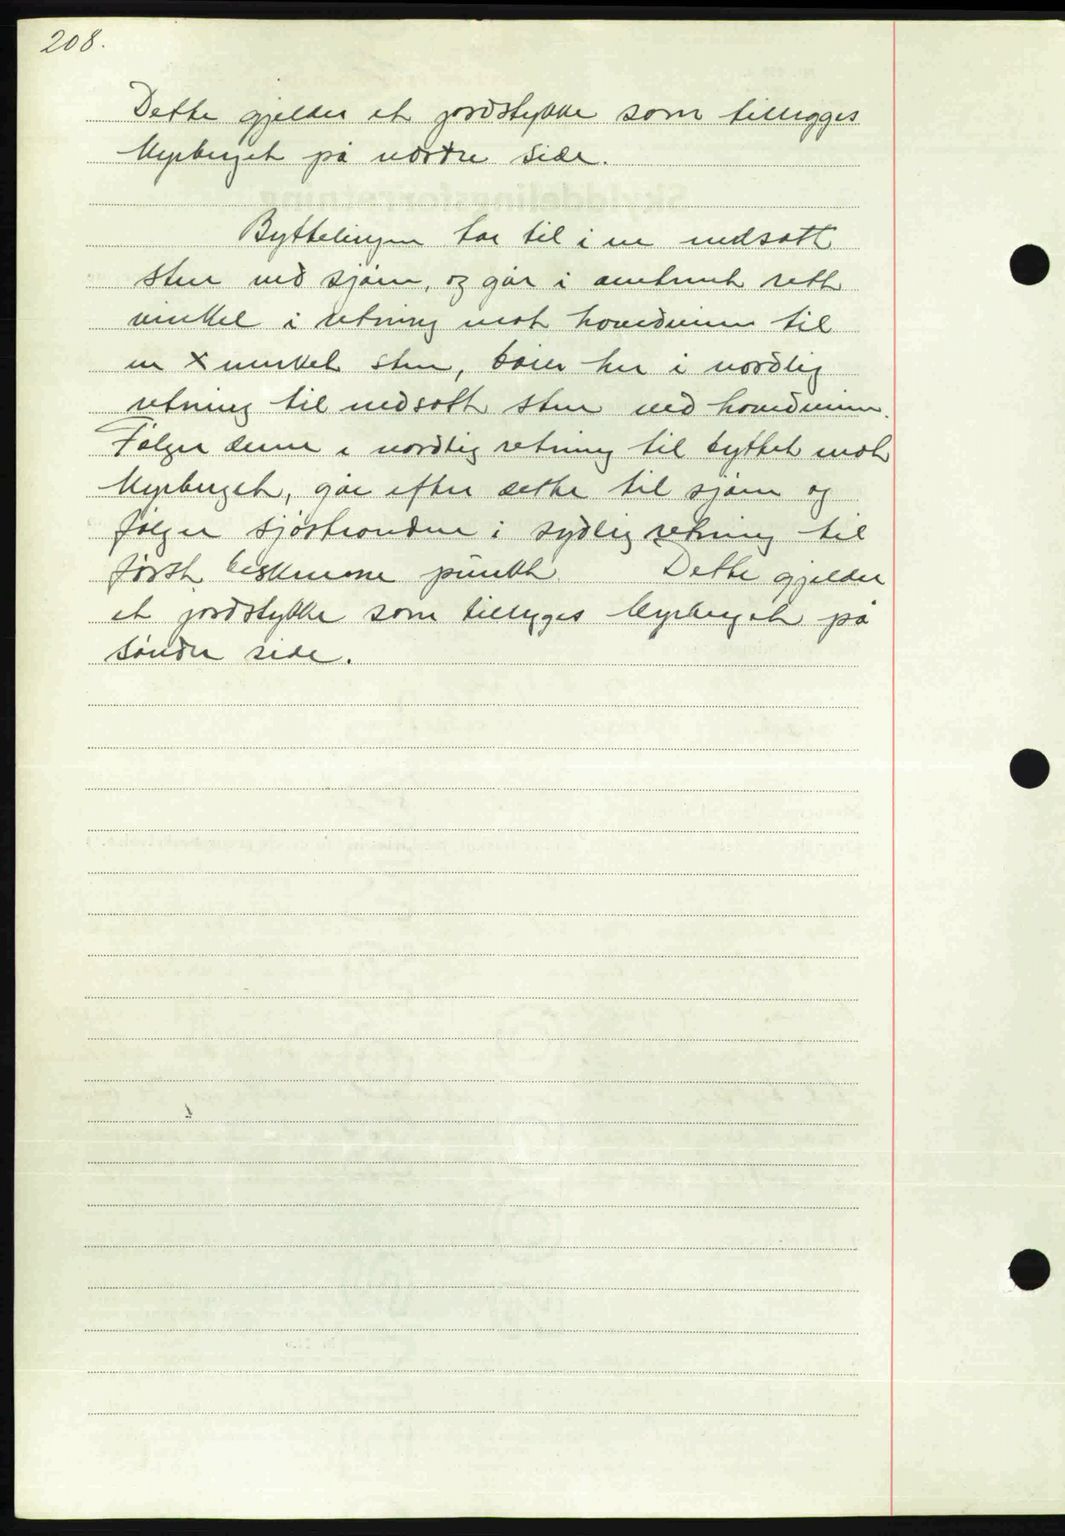 208.
Dette gjelder et jordstykke som tillegges
Myrberget på nordre side.
Byttelinjen tar til i en nedsatt
sten ved sjøen, og går i omtrent rett
vinkel i retning mot hovedveien til
en X merket sten, bøier her i nordlig
retning til nedsatt sten ved hovedveien.
Følger denne i nordlig retning til byttet mot
Myrberget, går efter dette til sjøen og
følger sjøstranden i sydlig retning til
først beskrevne punkt. Dette gjelder
et jordstykke som tillegges Myrberget på
søndre side.